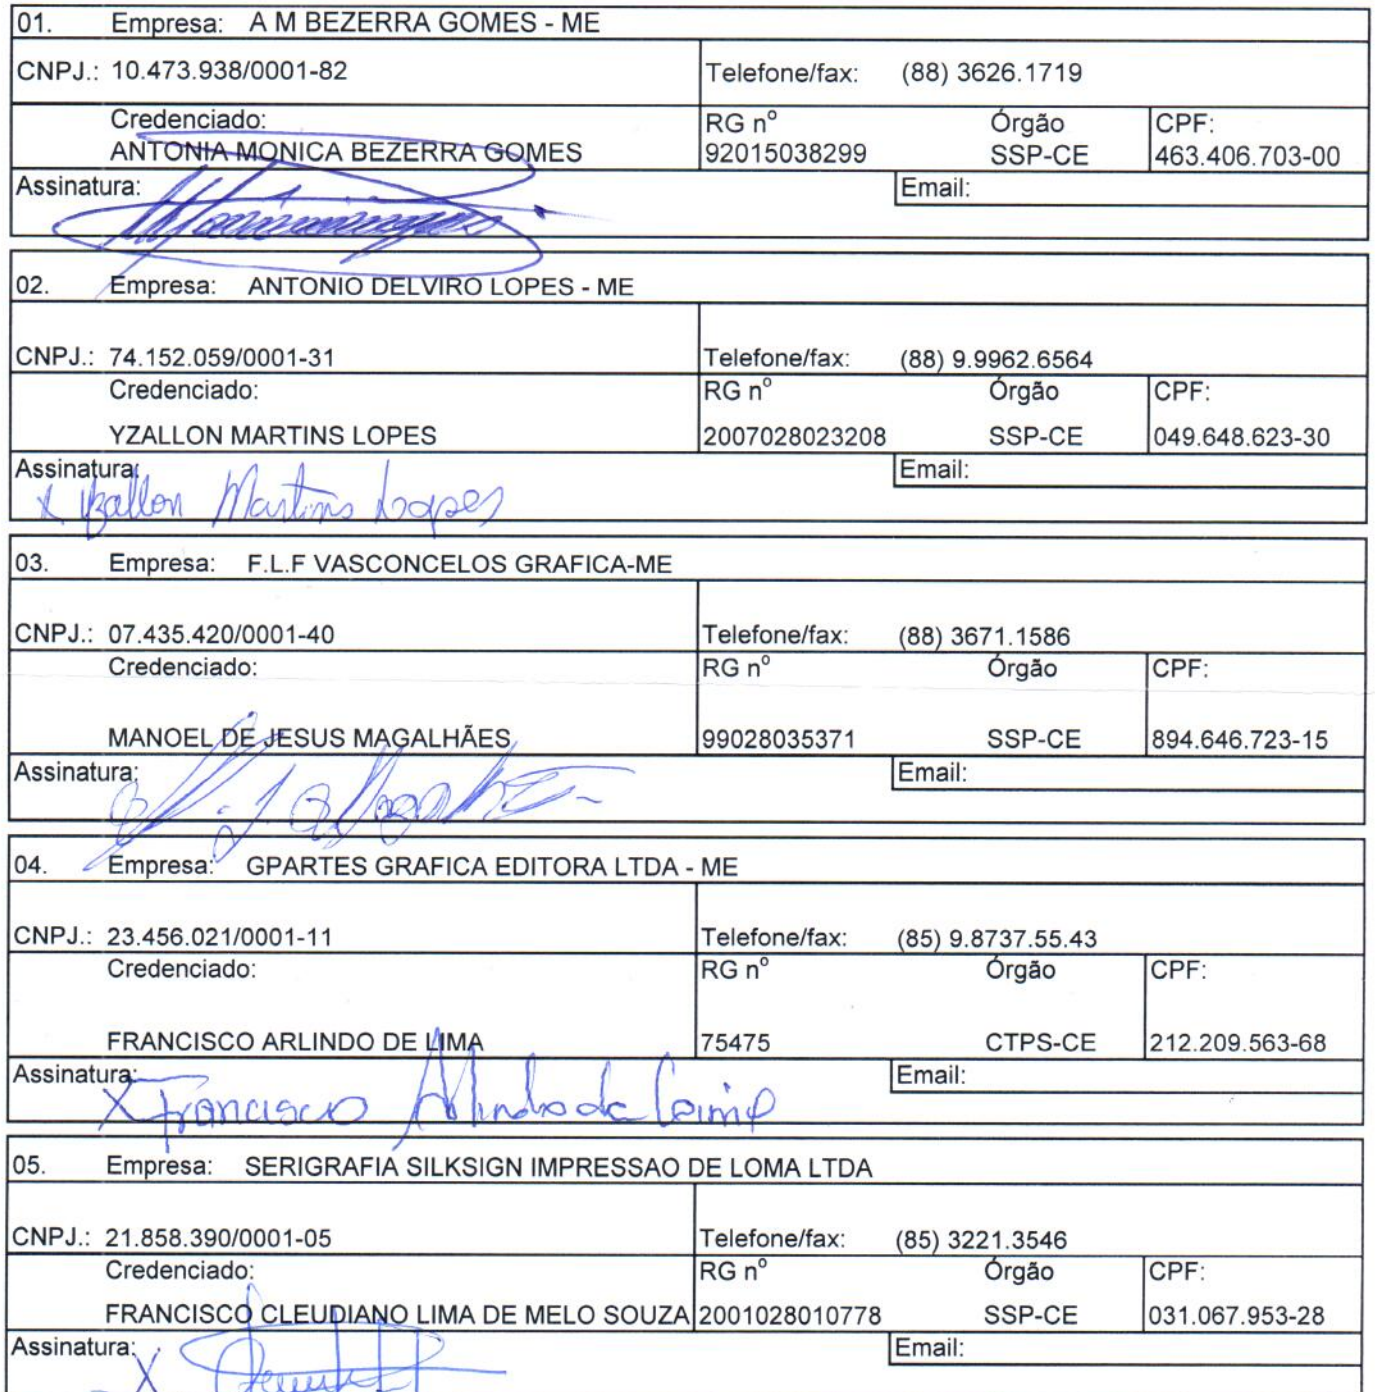 01. Empresa: A M BEZERRA GOMES - ME
CNPJ.: 10.473.938/0001-82 Telefone/fax: (88) 3626.1719
Credenciado: RG nº Órgão CPF:
ANTONIA MONICA BEZERRA GOMES 92015038299 SSP-CE 463.406.703-00
Assinatura: Email:
02. Empresa: ANTONIO DELVIRO LOPES - ME
CNPJ.: 74.152.059/0001-31 Telefone/fax: (88) 9.9962.6564
Credenciado: RG nº Órgão CPF:
YZALLON MARTINS LOPES 2007028023208 SSP-CE 049.648.623-30
Assinatura: Email:
x Yzallon Martins Lopes
03. Empresa: F.L.F VASCONCELOS GRAFICA-ME
CNPJ.: 07.435.420/0001-40 Telefone/fax: (88) 3671.1586
Credenciado: RG nº Órgão CPF:
MANOEL DE JESUS MAGALHÃES 99028035371 SSP-CE 894.646.723-15
Assinatura: Email:
04. Empresa: GPARTES GRAFICA EDITORA LTDA - ME
CNPJ.: 23.456.021/0001-11 Telefone/fax: (85) 9.8737.55.43
Credenciado: RG nº Órgão CPF:
FRANCISCO ARLINDO DE LIMA 75475 CTPS-CE 212.209.563-68
Assinatura: Email:
X Francisco Arlindo de Lima
05. Empresa: SERIGRAFIA SILKSIGN IMPRESSAO DE LOMA LTDA
CNPJ.: 21.858.390/0001-05 Telefone/fax: (85) 3221.3546
Credenciado: RG nº Órgão CPF:
FRANCISCO CLEUDIANO LIMA DE MELO SOUZA 2001028010778 SSP-CE 031.067.953-28
Assinatura: Email:
X